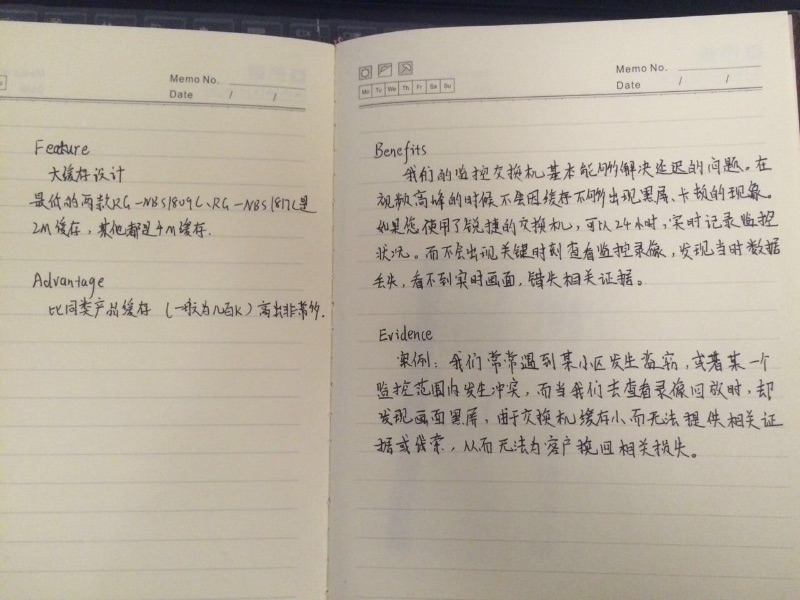 Memo No.
Date / /
Feature
大缓存设计
最低的两款RG-NBS1809C、RG-NBS1817C是
2M缓存，其他都是4M缓存.
Advantage
比同类产品缓存（一般为几百K）高出非常多.
Memo No.
Mo Tu We Th Fr Sa Su
Date / /
Benefits
我们的监控交换机基本能够解决延迟的问题。在
视频高峰的时候不会因缓存不够出现黑屏、卡顿的现象。
如果您使用了锐捷的交换机，可以24小时，实时记录监控
状况。而不会出现关键时刻查看监控录像，发现当时数据
丢失，看不到实时画面，错失相关证据。
Evidence
案例：我们常常遇到某小区发生盗窃，或者某一个
监控范围内发生冲突，而当我们去查看录像回放时，却
发现画面黑屏，由于交换机缓存小而无法提供相关证
据或线索，从而无法为客户挽回相关损失。